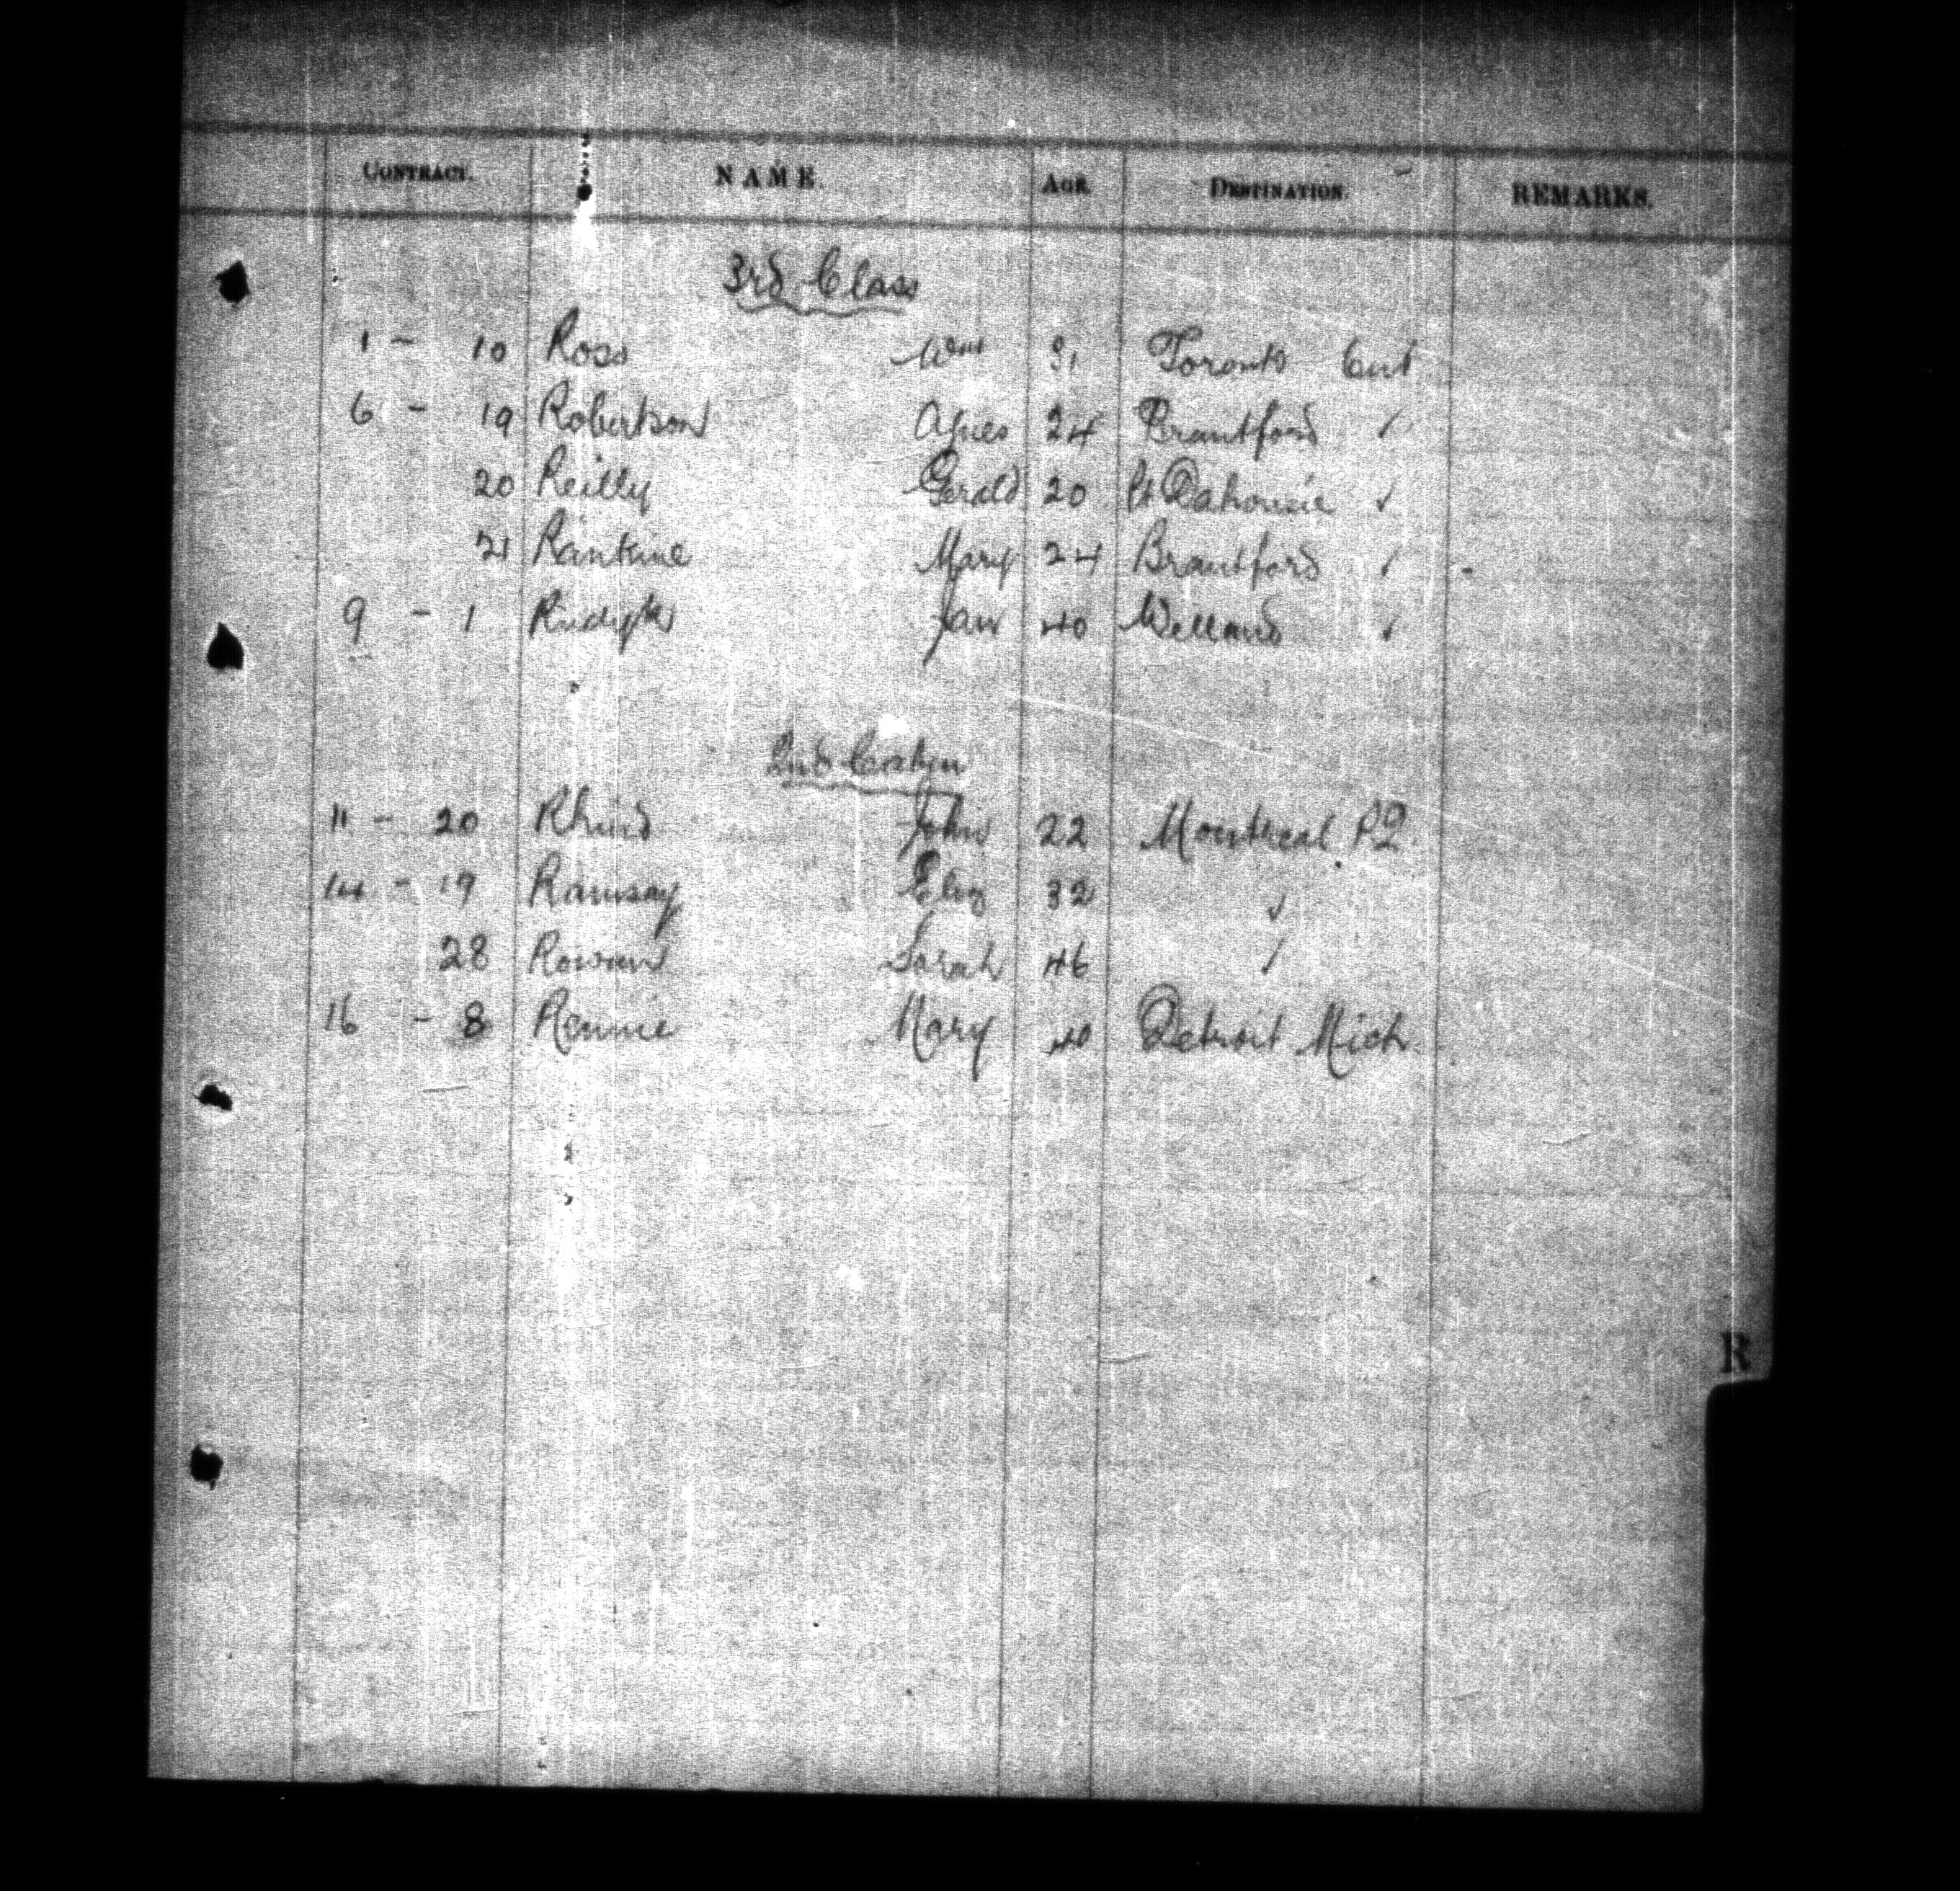 CONTRACT. NAME. AGE. DESTINATION. REMARKS.
3rd Class
1 - 10 Ross Wm 31 Toronto Ont
6 - 19 Robertson Agnes 24 Brantford ✓
20 Reilly Gerald 20 Pt Dahousie ✓
21 Rankine Mary 24 Brantford ✓ -
9 - 1 Jan 40 Welland ✓
2nd Cabin
11 - 20 Rhind John 22 Montreal P2
14 - 19 Ramsay Eliz 32 ✓
28 Rowan Sarah 46 ✓
16 - 8 Rennie Mary 40 Detroit Mich
R